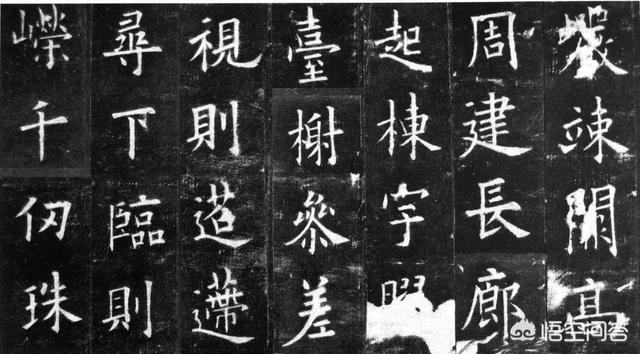 竦闕高
周建長廊
起棟宇
臺榭參差
視則迢遰
尋下臨則
嶸千仞珠
悟空问答